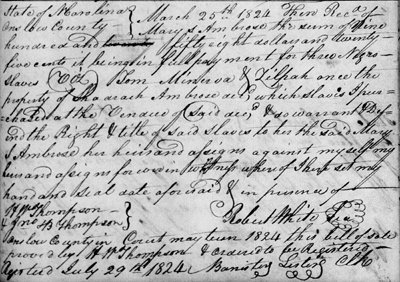 State of N Carolina
Onslow County
March 25th 1824 Then Recd of
Mary S Ambrose the sum of Nine
hundred and fifty eight dollars and twenty
five cents it being in full payment for three Negro
slaves Tom Minerva & Zilpah once the
property of Shadrach Ambrose decd which slaves I pur
chased at the Vendue of said decd & do warrant & Def
end the Right & title of said slaves to her the said Mary
S Ambrose her heirs and assigns against myself my
heirs and assigns forever in witness whereof I have set my
hand and seal date aforesaid in presence of
Wm Thompson
& B Thompson
Robert White
Onslow County in Court may term 1824 this bill of sale
proved by Wm Thompson & ordered to be Registered
Registered July 29th 1824 Banister Lester